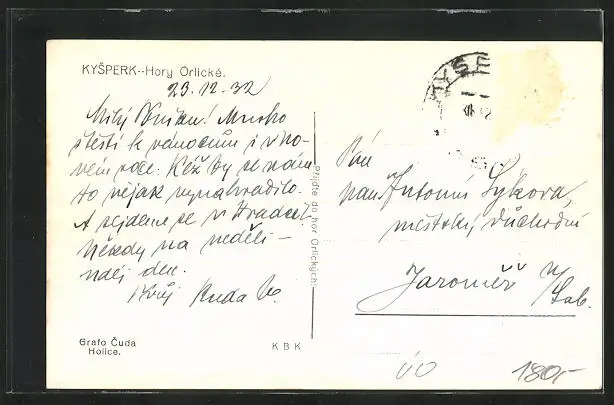 KYŠPERK--Hory Orlické.
23.12.32
Milý Mnoho
štěstí k vánocům i v no-
vém roce. Kéž by se nám
to nějak vynahradilo.
A sejdeme se v Hradci
někdy na neděli -
den.
Ruda
Přijďte do hor Orlických!
Pán
pan Antonín Sýkora,
městský důchodní
Jaroměř n/Lab.
Grafo Čuda
Holice.
K B K
180,-